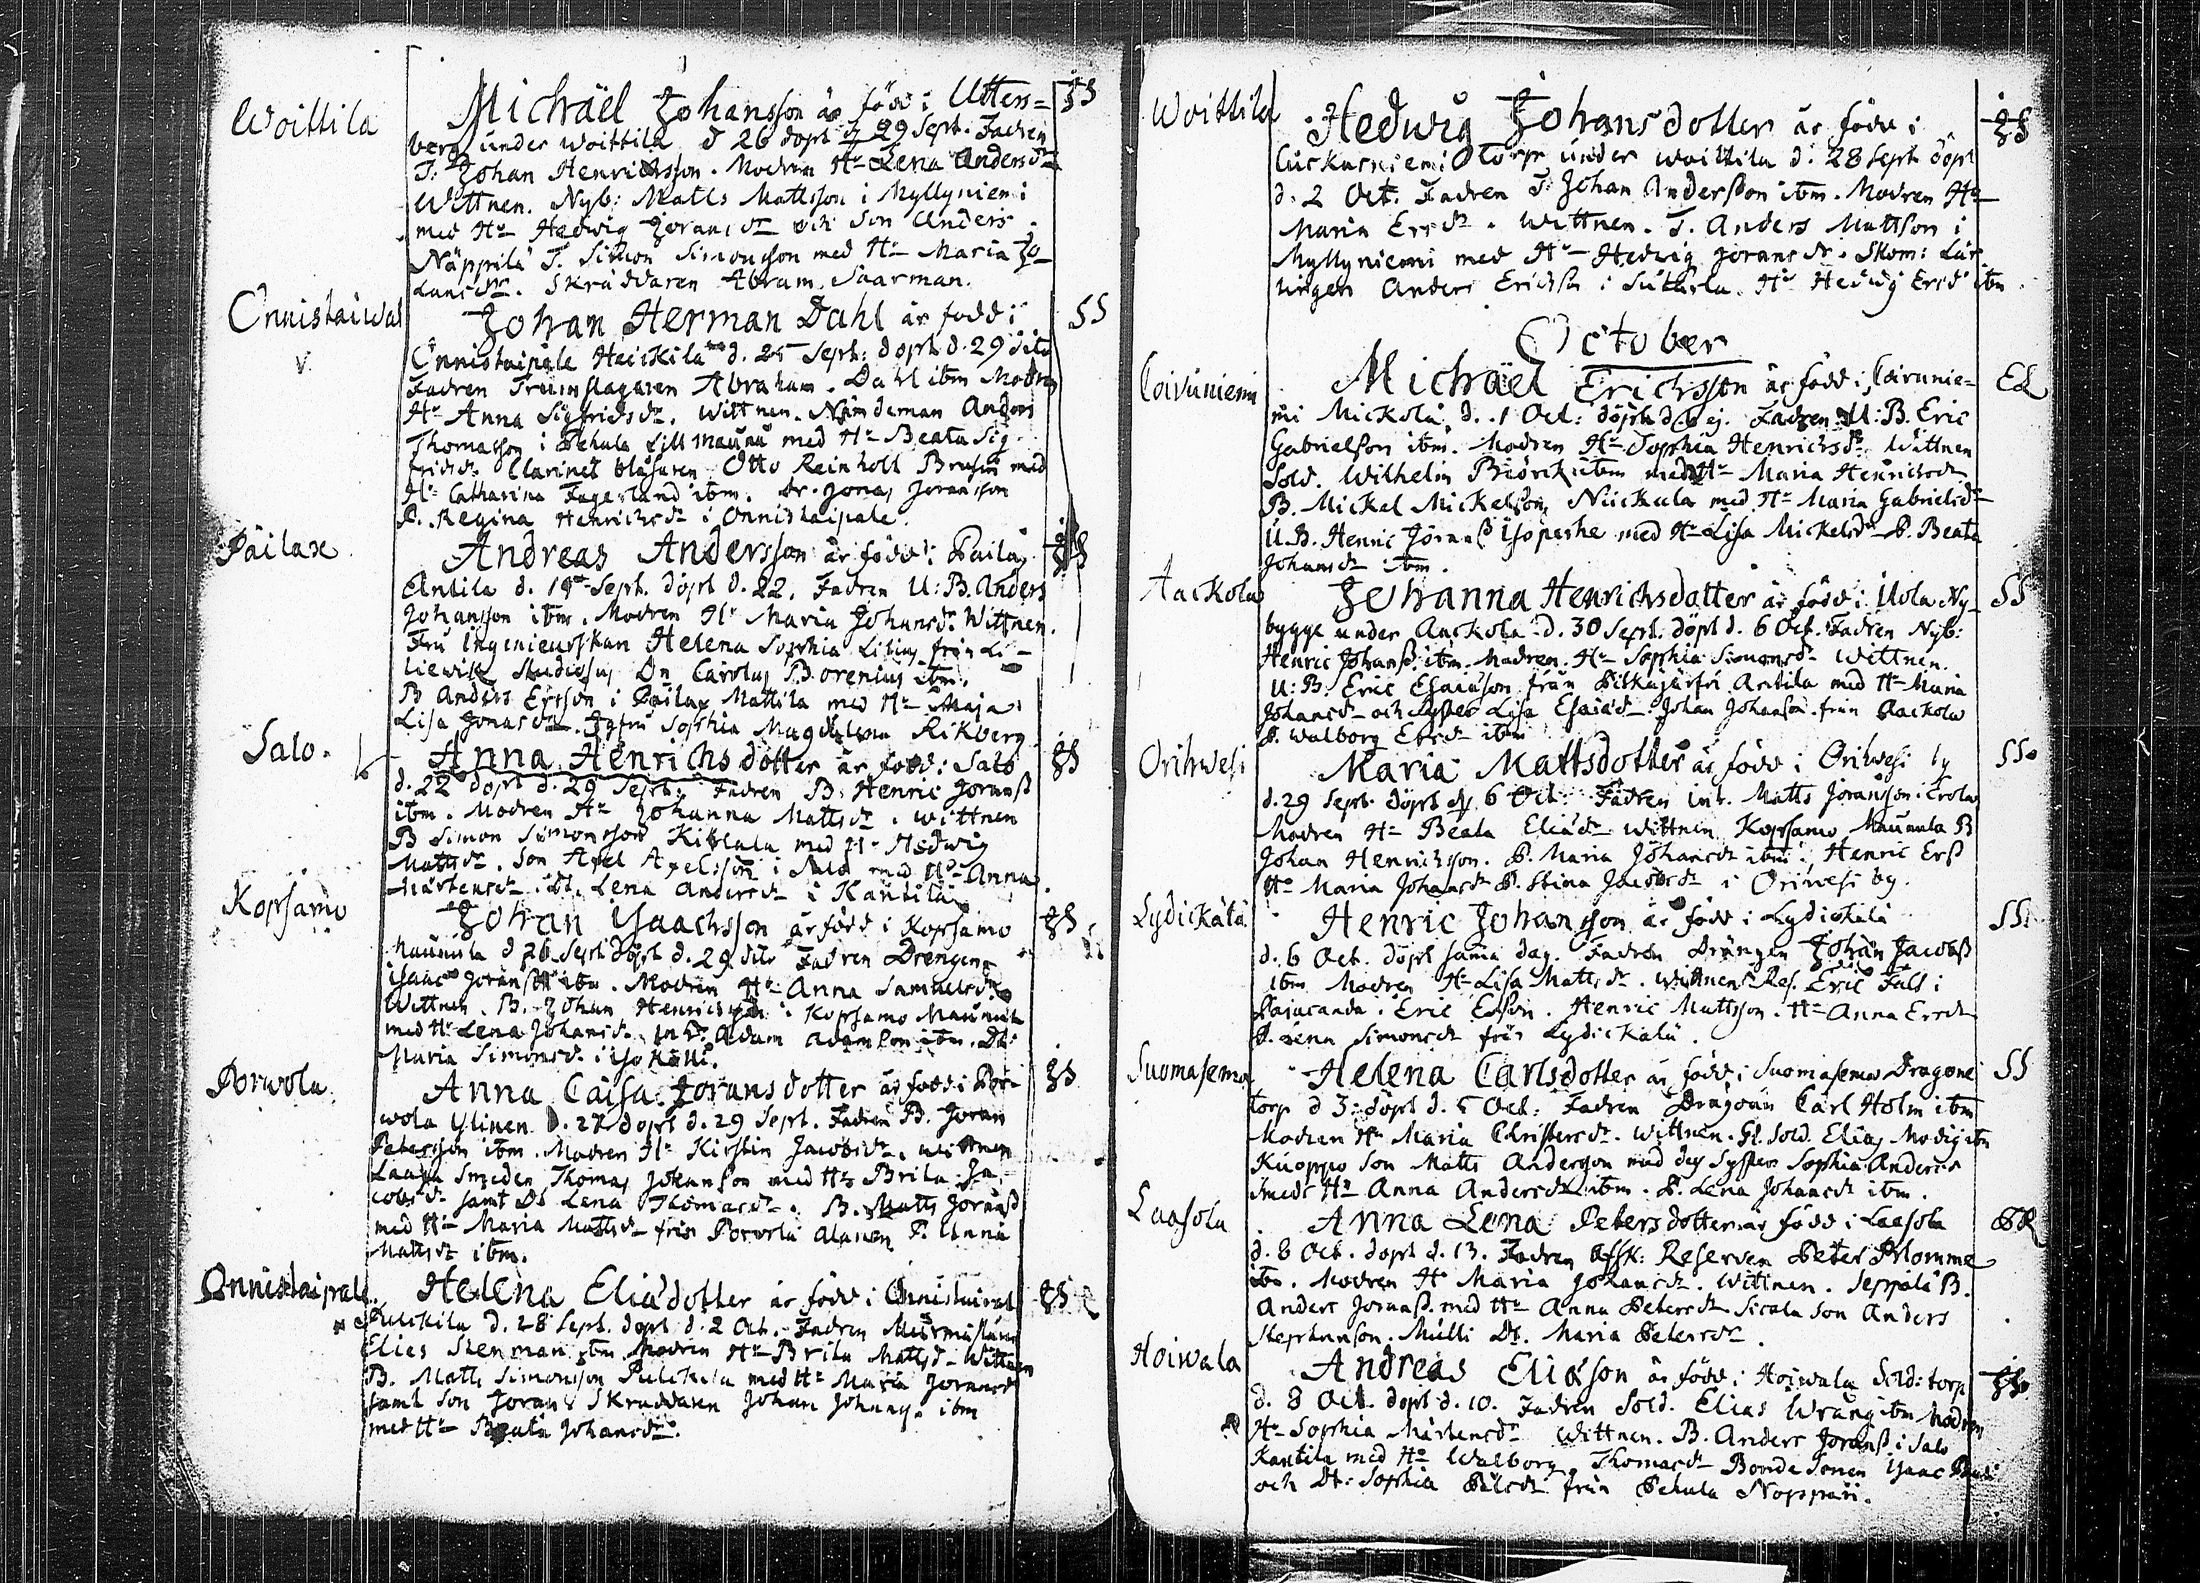 Woittila
Michäel Johansson är född i Utters=
berg under Woittila d 26 döpt d 29 Sept. Fadren
T: Johan Henricksson. Modren Hu Lena Andersdr
Wittnen. Nyb: Matts Mattsson i Myllyniemi
med Hu Hedwig Joransdr och Son Anders
Näppilä T. Simon Simonsson med Hu Maria Jo
Skräddaren Abram Saarman.
Onnistaival
Johan Herman Dahl är född i
Onnistaipale Heickilä d. 25 Sept: döpt d. 29 dito
Fadren Trumslagaren Abraham Dahl ibm Modren
Hu Anna Sigfridsdr. Wittnen. Nämdeman Anders
Thomasson i Pehula Lill Maunu med Hu Beata Sig
fridsdr. Clarinet blåsaren Otto Reinholt med
Hu Catharina Fagerlund ibm. Dr. Jonas Joransson
P. Regina Henrichsdr i Onnistaipale.
Päilax
Andreas Andersson är född i Pailax
Antila d. 19 Sept. döpt d. 22. Fadren U: B. Anders
Johansson ibm. Modren Hu Maria Johansdr. Wittnen.
Fru Ingenieurskan Helena Sophia Lilius från Li-
Studiosus Dn Carolus Borenius ibm.
B Anders Ersson i Pailax Mattila med Hu Maja
Lisa Jonasdr. Jgfru Sophia Magdalena Rikberg
Salo.
Anna Henrichsdotter är född i Salo
d. 22 döpt d. 29 Sept: Fadren B: Henric Joranß
ibm. Modren Hu Johanna Mattsdr. Wittnen
B Simon Simonsson med Hu Hedwig
Mattsdr. Son Axel Axelsson i Salo med Hu Anna
Mårtensdr. Dt. Lena Andersdr i Kantila
Kopsamo
Johan Isaachsson är född i Kopsamo
Maunula d 26 Sept döpt d. 29 dito Fadren Drengen
Isaac Joranß ibm. Modren Hu Anna Samuelsdr
Wittnen. B. Johan Henricsson i Kopsamo Maunula
med Hu Lena Johansdr. Adam Adamson ibm. Dt.
Maria Simonsdr. i Iso Källi.
Porwola
Anna Caisa Joransdotter är född i Por-
wola Ylinen d. 27 döpt d. 29 Sept. Fadren B. Joran
Petersson ibm. Modren Hu Kirstin Jacobsdr. Wittnen
Smeden Thomas Johanson med Hu Brita Ja
cobsdr samt Dt Lena Thomasdr. B. Matts Joranß
med Hu Maria Mattsdr från Porvola Alanen P. Anna
Mattsdr ibm.
Onnistaipale
Helena Eliædotter är född i Onnistaival
d. 28 Sept. döpt d. 2 Oct. Fadren Murmästaren
Elies Stenman ibm Modren Hu Brita Mattsd. Wittnen
B. Matts Simonsson med Hu Maria Joransdr
samt Son Joran Skräddaren Johan ibm
med Hu Beata Johansdr.
Woittila
Hedwig Johansdotter är född i
Torp under Woittila d. 28 Sept döpt
d. 2 Oct. Fadren T. Johan Andersson ibm. Modren Hu
Maria Ersdr. Wittnen. T. Anders Mattson i
Myllyniemi med Hu Hedwig Joransdr. Skom: Lär
lingen Anders Erichson i Suttirla. Hu Hedwig Ersd ibm.
October
Coivuniemi
Michäel Erichsson är född i Coivunie=
mi Mickola, d. 1 Oct: döpt d. 6 ej. Fadren U: B. Eric
Gabrielson ibm. Modren Hu Sophia Henrichsdr. Wittnen
Sold. Wilhelm ibm med Hu Maria Henrichsdr
B. Mickel Mickelson, Niickula med Hu Maria Gabrielsdr
U. B. Henric Joranß Isoperhe med Hu Lisa Mickelsdr P. Beata
Johansdr ibm.
Aackola
Johanna Henrichsdotter är född i Uola Ny-
bygge under Aackola d. 30 Sept. döpt d. 6 Oct. Fadren Nyb:
Henric Johanß. ibm. Modren. Hu Sophia Simonsdr. Wittnen.
U: B. Eric Esaiäson från Pitkäjärfvi Antila med Hu Maria
Johansdr och Syster Lisa Esaiäd. Johan Johanson från Aackola
P. Walborg Ersdr ibm
Orihwesi
Maria Mattsdotter är född i Orihwesi by
d. 29 Sept. döpt d. 6 Oct: Fadren Inh. Matts Joransson Erola
Modren Hu Beata Eliædr Wittnen Kopsamo Maunula B
Johan Henrichsson. P. Maria Johansdr ibm. Henric Erß
Hu Maria Johansdr P. Stina Jacobsdr i Oriwesi by.
Lydickälä
Henric Johansson är född i Lydickälä
d. 6 Oct. döpt sama dag. Fadren Drängen Johan Jacobß
ibm Modren Hu Lisa Mattsdr. Wittnen Res. Eric Fält i
Pajucanda. Eric Erson. Henric Mattsson. Hu Anna Ersdr
P. Lena Simonsdr från Lydickälä.
Suomasema
Helena Carlsdotter är född i Suomasema Dragone
torp d 3: döpt d. 5 Oct: Fadren Dragoun Carl Holm ibm
Modren Hu Maria Christersdr. Wittnen. Gl. Sold. Elias Modig ibm
Kuoppo Son Matts Andersson med des Syster Sophia Andersdr
Smeds Hu Anna Andersdr ibm. P. Lena Johansdr ibm.
Laasola
Anna Lena Petersdotter är född i Laasola
d. 8 Oct. döpt d. 13. Fadren Afsk: Reserven Peter Blomme
ibm. Modren Hu Maria Johansdr. Wittnen. Seppälä B.
Anders Joranß. med Hu Anna Petersdr Sicala Son Anders
Stephanson. Mulli Dt. Maria Petersdr.
Hoiwala
Andreas Eliæson är född i Hoiwala Sold: torp
d. 8 Oct. döpt d. 10. Fadren Sold. Elias Wrång ibm Modren
Hu Sophia Mårtensdr Wittnen. B. Anders Joranß i Salo
Kantila med Hu Walborg Thomasdr Bonde Sonen Isaac
och Dt: Sophia Pålsdr från Pehula Noppari.